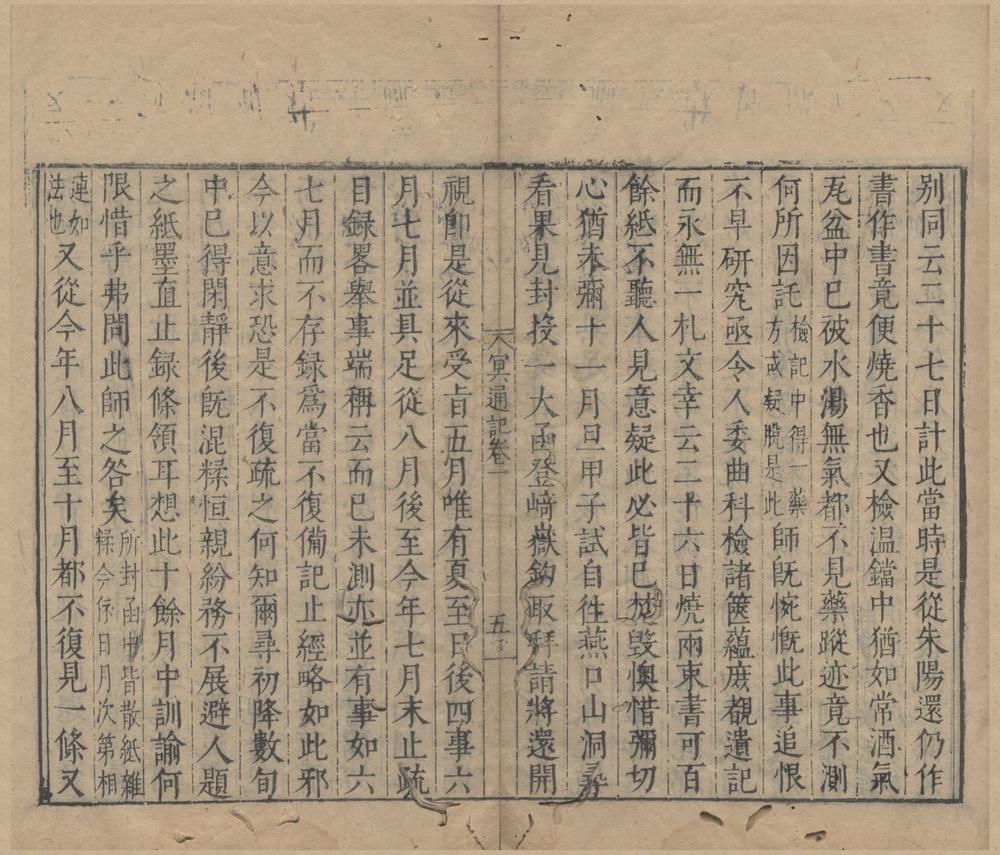 别同云二十七日計此當時是從朱陽還仍作
書作書竟便燒香也又檢温鐺中猶如常酒氣
瓦盆中已被水湯無氣都不見藥蹤迹竟不測
何所因託檢記中得一藥方或疑脫是此師旣惋慨此事追恨
不早研究亟令人委曲科檢諸篋蘊庻覩遺記
而永無一札文幸云二十六日燒兩束書可百
餘紙不聽人見意疑此必皆已焚毀懊惜彌切
心猶未彌十一月旦甲子試自徃燕口山洞尋
看果見封投一大函登﨑嶽鈎取拜請將還開
冥通記卷一
五
視卽是從來受旨五月唯有夏至日後四事六
月七月並具足從八月後至今年七月末止疏
目録畧舉事端稱云而已未測亦並有事如六
七月而不存録爲當不復備記止經略如此邪
今以意求恐是不復疏之何知爾尋初降數旬
中已得閑靜後旣混糅恒親紛務不展避人題
之紙墨直止録條領耳想此十餘月中訓諭何
限惜乎弗問此師之咎矣所封函中皆散紙雜糅今依日月次第相
連如法也又從今年八月至十月都不復見一條又